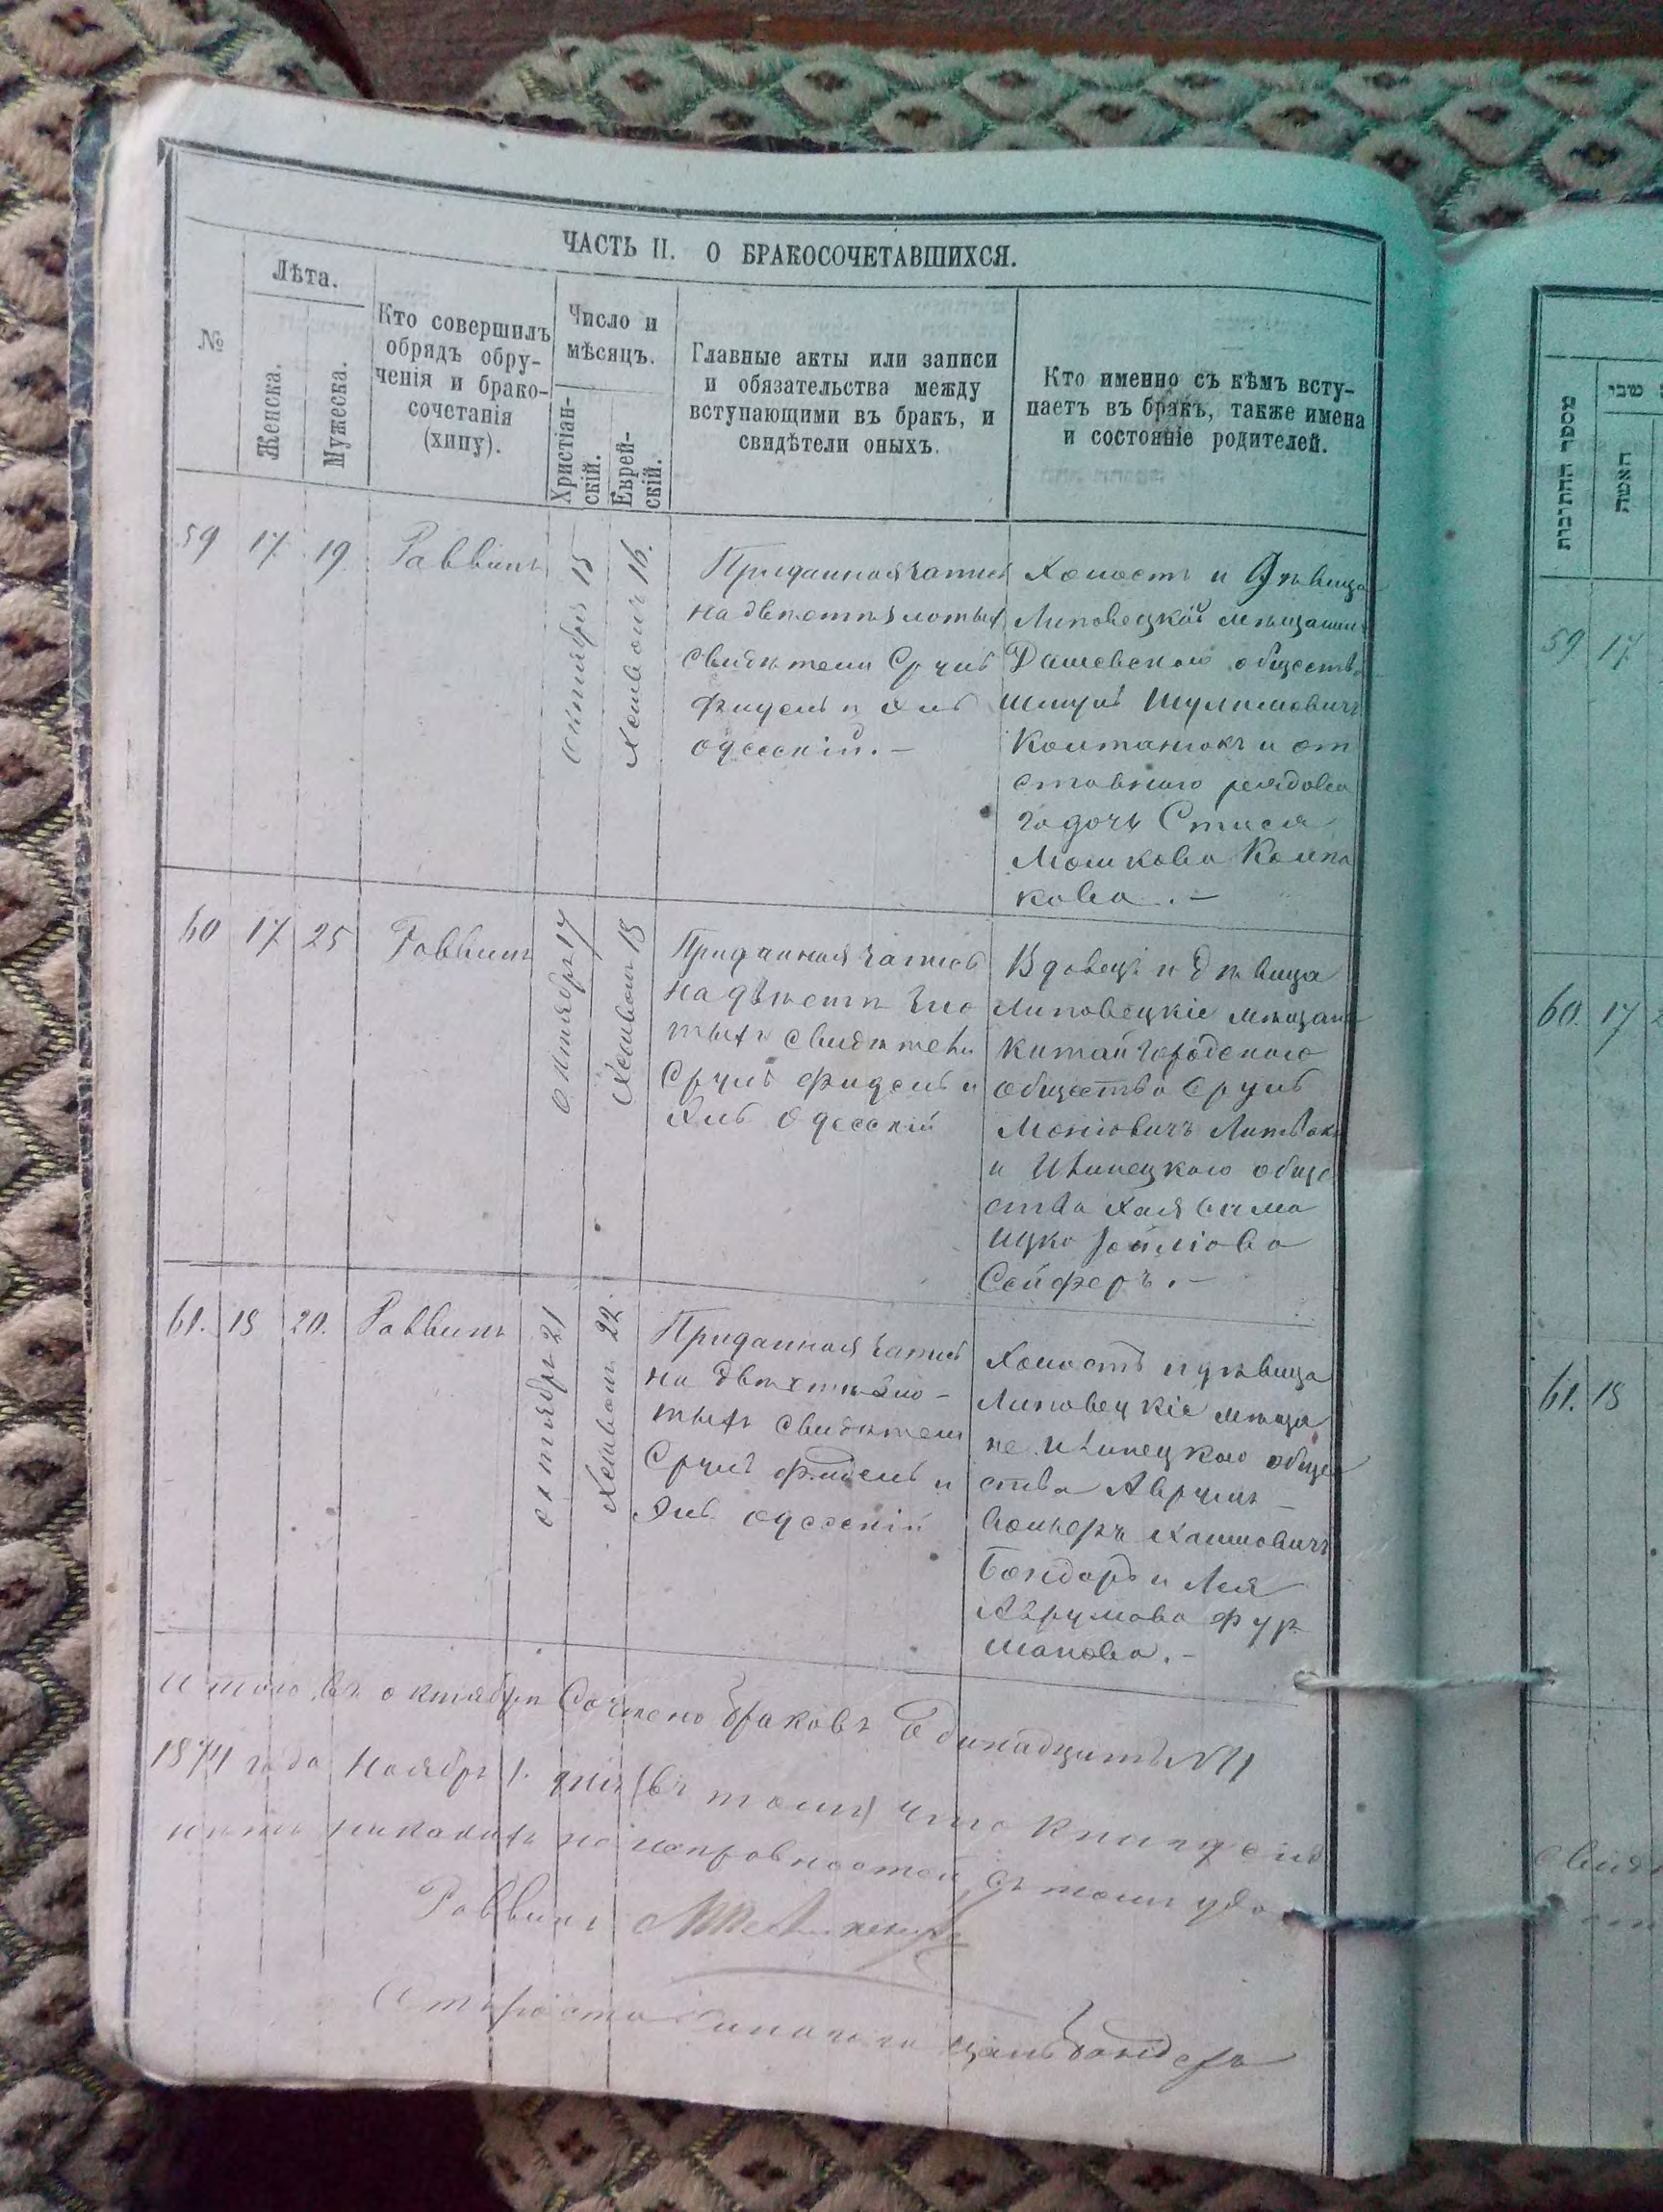 ЧАСТЬ II. О БРАКОСОЧЕТАВШИХСЯ.
№
Лѣта.
Женска.
Мужеска.
Кто совершилъ
обрядъ обру-
ченія и брако-
сочетанія
(хипу).
Число и
мѣсяцъ.
Христіан-
скій.
Еврей-
скій.
Главные акты или записи
и обязательства между
вступающими въ бракъ, и
свидѣтели оныхъ.
Кто именно съ кѣмъ всту-
паетъ въ бракъ, также имена
и состояніе родителей.
59 17 19 Раввинъ
октября 15
Хешвонъ 16.
Приданная запись
на двѣсти злотыхъ
свидѣтели Сруль
Фидель и Эль
Одесскій. —
Холостъ и Дѣвица
Липовецкій мѣщанинъ
Дашевского обществ
Шмуль Шулимовичъ
Колтанюкъ и от
ставного рядово
го дочь Стися
Мошкова Колпа
кова. —
60 17 25 Раввинъ
октября 17
Хешвонъ 18
Приданная запись
на двѣсти зло
тыхъ свидѣтели
Сруль Фидель и
Эль Одесскій
Вдовецъ и дѣвица
Липовецкіе мѣщане
Китайгородского
общества Сруль
Литвакъ
и Илинецкого обще
ства Хая Сима
Ицко
Сейферъ. —
61. 18 20. Раввинъ
октября 21
Хешвонъ 22.
Приданная запись
на двѣсти зло-
тыхъ свидѣтели
Сруль Фидель и
Эль Одесскій
Холостъ и дѣвица
Липовецкіе мѣща
не Илинецкого обще
ства Аврумъ —
Хаимовичъ
Бондарь и Лея
Аврумова Фур
манова. —
Итого въ октябрѣ Сочтено браковъ Одинадцать №11
1874 года Ноября 1. дня (въ томъ) что книгѣ сей
нѣтъ никакихъ неисправностей въ томъ удо
Раввинъ
Староста
מספר החתונות
שני
האשה
59 17
60. 17 2
61. 18